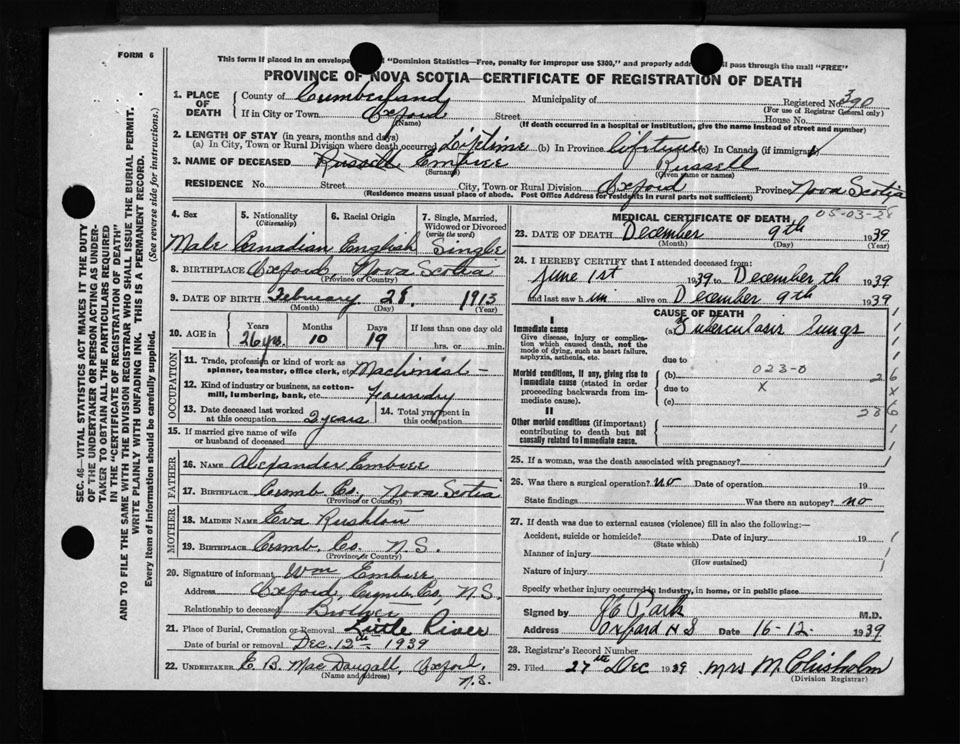 FORM 6
This form if placed in an envelope "Dominion Statistics—Free, penalty for improper use $300," and properly addre ll pass through the mail "FREE"
PROVINCE OF NOVA SCOTIA—CERTIFICATE OF REGISTRATION OF DEATH
1. PLACE OF DEATH County of Cumberland Municipality of Registered No. 390
(For use of Registrar General only)
If in City or Town Oxford Street House No.
(Name) (If death occurred in a hospital or institution, give the name instead of street and number)
2. LENGTH OF STAY (in years, months and days)
(a) In City, Town or Rural Division where death occurred Lifetime (b) In Province Lifetime (c) In Canada (if immigrant)
3. NAME OF DECEASED Russell Embree Russell
(Surname) (Given name or names)
RESIDENCE No. Street City, Town or Rural Division Oxford Province Nova Scotia
(Residence means usual place of abode. Post Office Address for residents in rural parts not sufficient)
05-03-28
4. Sex 5. Nationality (Citizenship) 6. Racial Origin 7. Single, Married, Widowed or Divorced (write the word)
Male Canadian English Single
8. BIRTHPLACE Oxford, Nova Scotia
(Province or Country)
9. DATE OF BIRTH February 28, 1913
(Month) (Day) (Year)
10. AGE in Years Months Days If less than one day old
26 yrs. 10 19 hrs. or min.
OCCUPATION
11. Trade, profession or kind of work as spinner, teamster, office clerk, etc. Machinist -
12. Kind of industry or business, as cotton-mill, lumbering, bank, etc. Foundry
13. Date deceased last worked at this occupation 2 years 14. Total years spent in this occupation
15. If married give name of wife or husband of deceased
FATHER
16. NAME Alexander Embree
17. BIRTHPLACE Cumb. Co., Nova Scotia
(Province or Country)
MOTHER
18. MAIDEN NAME Eva Rushton
19. BIRTHPLACE Cumb. Co. N.S.
(Province or Country)
20. Signature of informant Wm Embree
Address Oxford, Cumb. Co. N.S.
Relationship to deceased Brother
21. Place of Burial, Cremation or Removal Little River
Date of burial or removal Dec. 12th 1939
22. UNDERTAKER E. B. MacDougall, Oxford, N.S.
(Name and address)
MEDICAL CERTIFICATE OF DEATH
23. DATE OF DEATH December 9th 1939
(Month) (Day) (Year)
24. I HEREBY CERTIFY that I attended deceased from:
June 1st 1939 to December th 1939
and last saw him alive on December 9th 1939
CAUSE OF DEATH
I
Immediate cause (a) Tuberculosis Lungs
Give disease, injury or complication which caused death, not the mode of dying, such as heart failure, asphyxia, asthenia, etc.
due to
Morbid conditions, if any, giving rise to immediate cause (stated in order proceeding backwards from immediate cause).
(b) 023-0 26
due to X X
(c) 286
II
Other morbid conditions (if important) contributing to death but not causally related to immediate cause.
25. If a woman, was the death associated with pregnancy?
26. Was there a surgical operation? no Date of operation 19
State findings Was there an autopsy? no
27. If death was due to external causes (violence) fill in also the following:—
Accident, suicide or homicide? Date of injury 19
(State which)
Manner of injury
(How sustained)
Nature of injury
Specify whether injury occurred in industry, in home, or in public place
Signed by Park M.D.
Address Oxford N S Date 16-12- 1939
28. Registrar's Record Number
29. Filed 27th Dec 1939 Mrs M. Chisholm
(Division Registrar)
SEC. 46—VITAL STATISTICS ACT MAKES IT THE DUTY
OF THE UNDERTAKER OR PERSON ACTING AS UNDER-
TAKER TO OBTAIN ALL THE PARTICULARS REQUIRED
IN THE "CERTIFICATE OF REGISTRATION OF DEATH"
AND TO FILE THE SAME WITH THE DIVISION REGISTRAR WHO SHALL ISSUE THE BURIAL PERMIT.
WRITE PLAINLY WITH UNFADING INK. THIS IS A PERMANENT RECORD.
Every item of information should be carefully supplied. (See reverse side for instructions.)